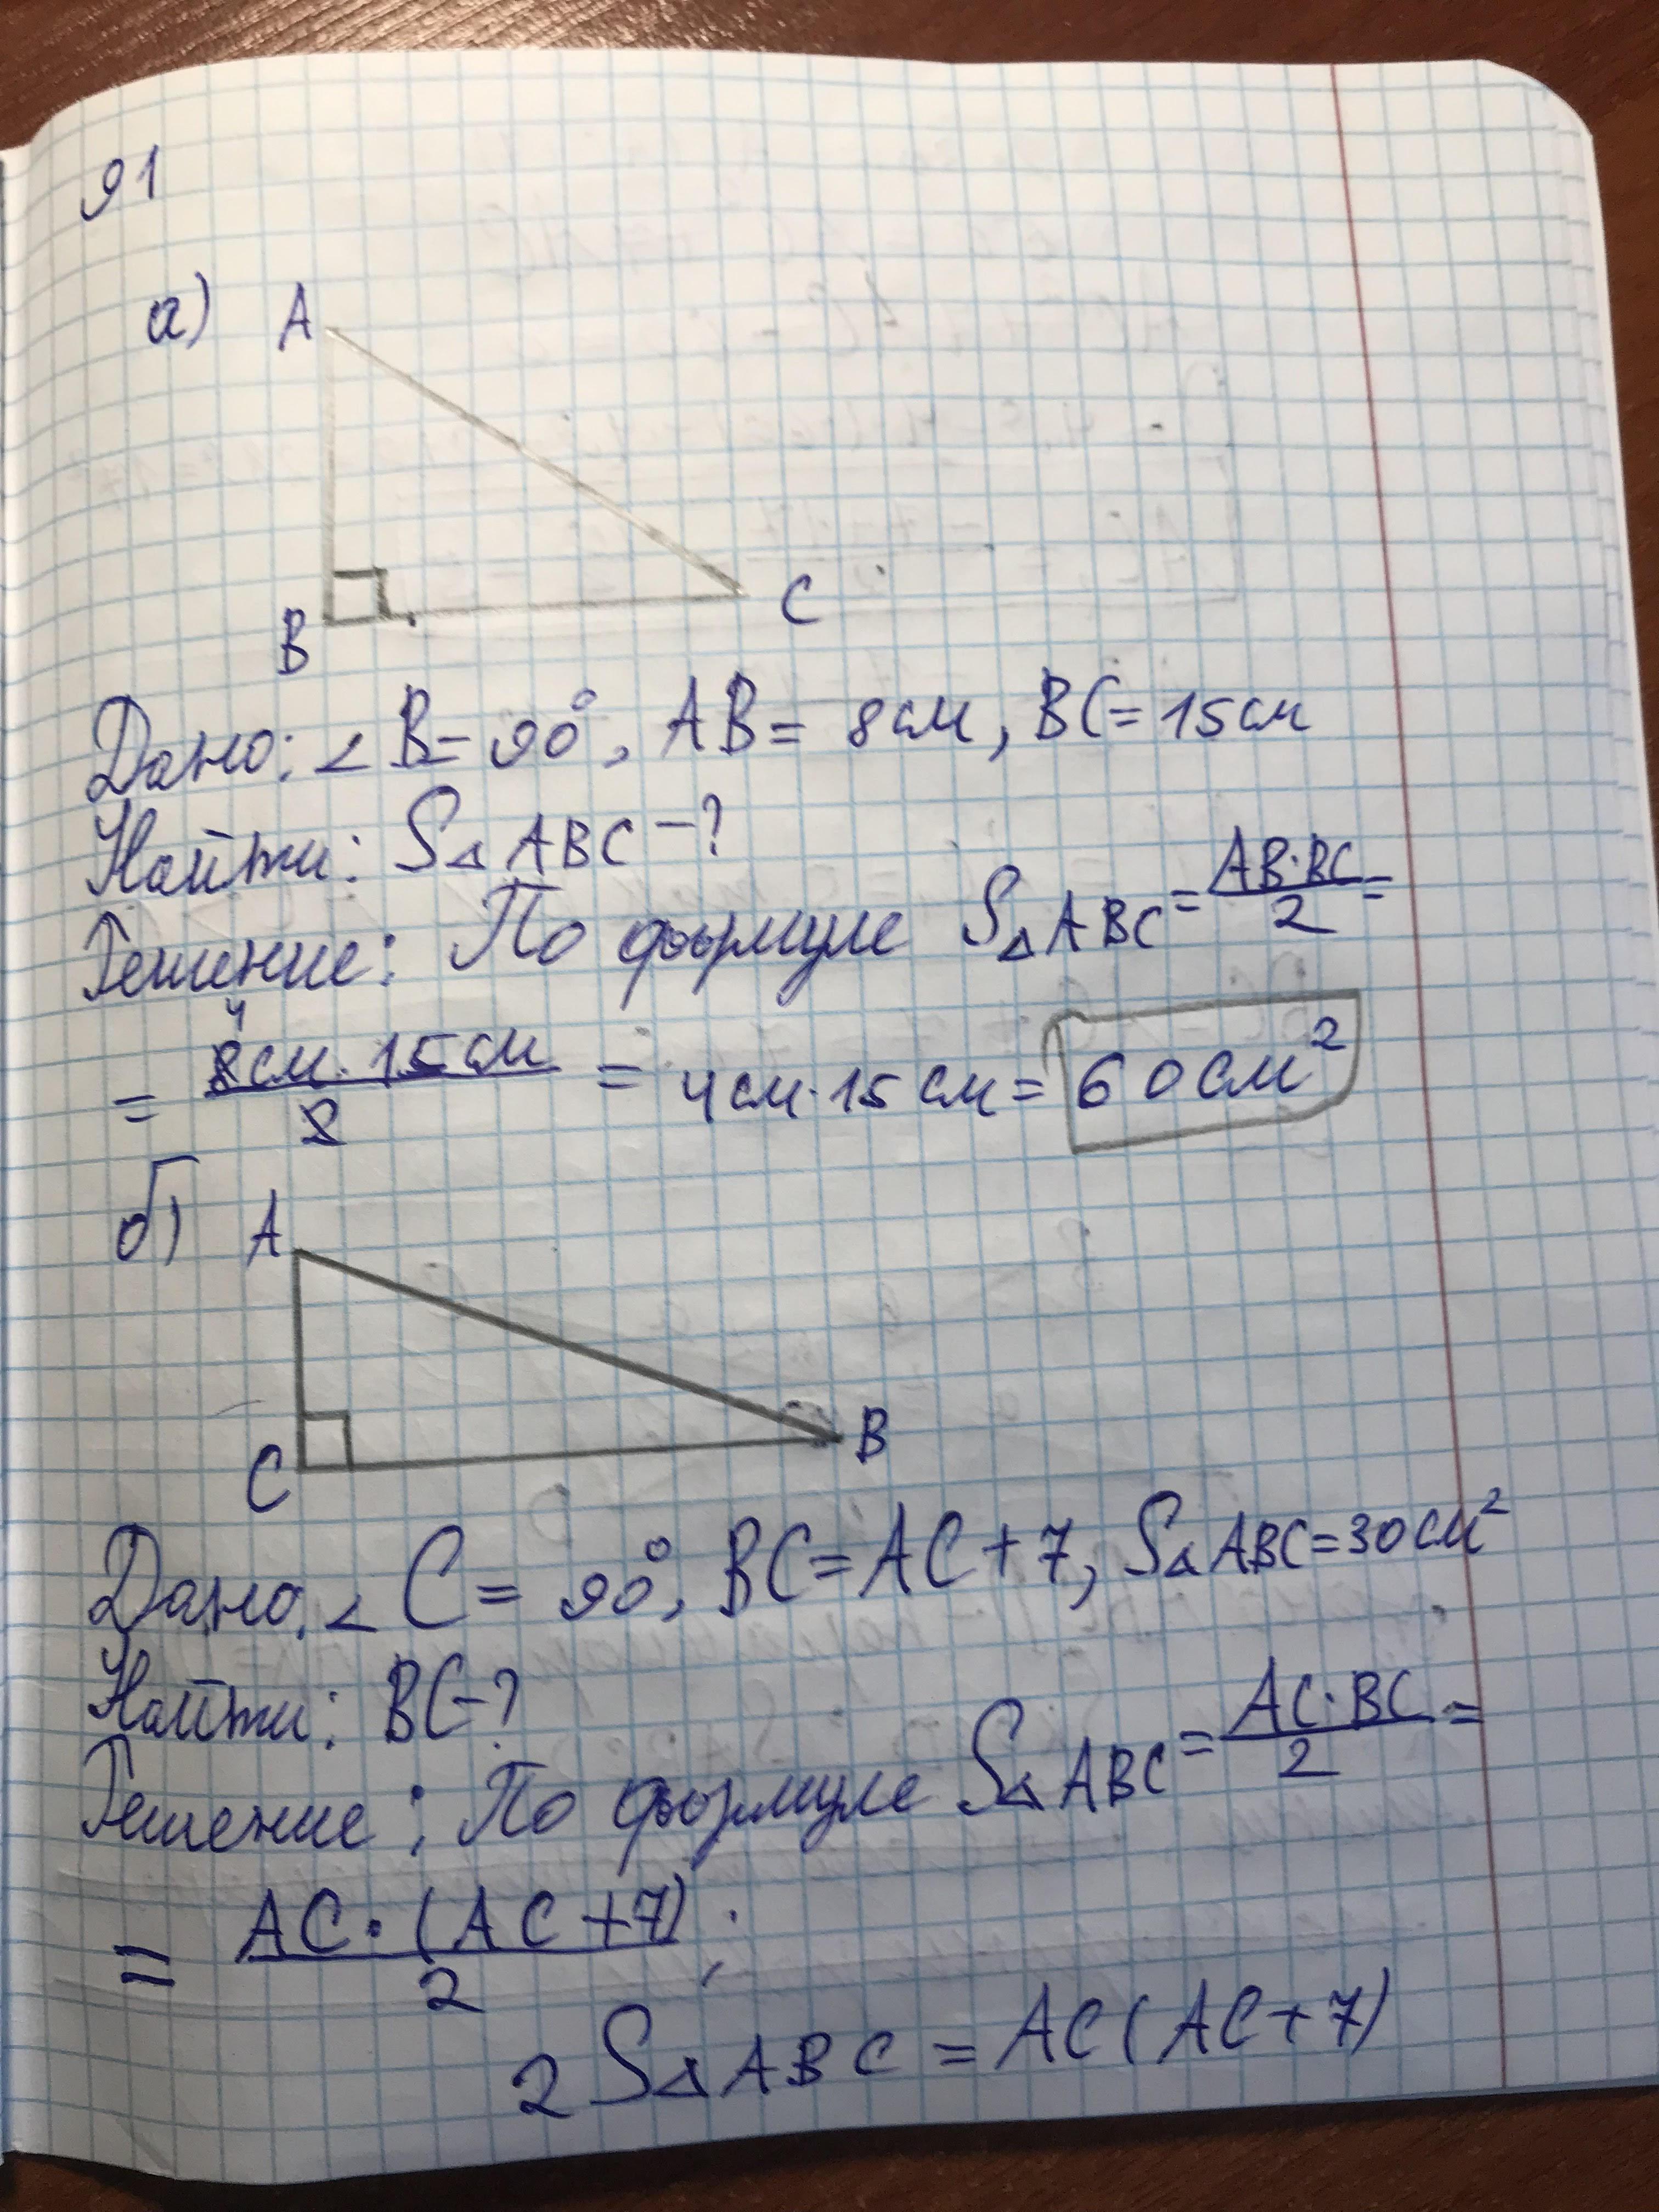 91
а) A
B
C
Дано: ∠B=90°, AB= 8см, BC=15см
Найти: S△ABC-?
Решение: По формуле S△ABC = AB·BC/2 =
= 8см·15см/2 = 4см·15см= 60см²
4
б) A
B
C
Дано: ∠C=90°, BC=AC+7, S△ABC=30см²
Найти: BC-?
Решение: По формуле S△ABC = AC·BC/2 =
= AC·(AC+7)/2;
2S△ABC = AC(AC+7)